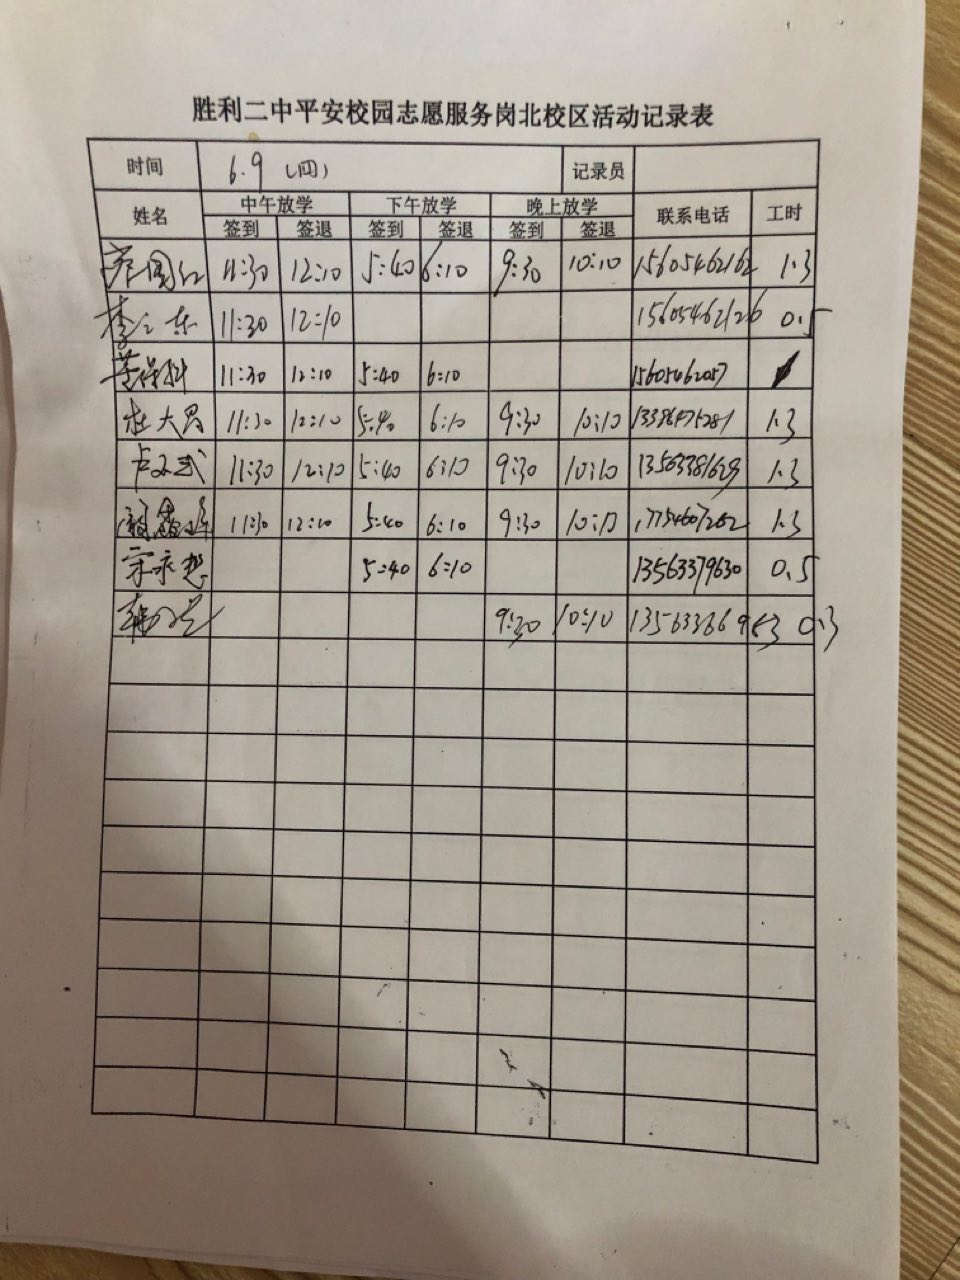 胜利二中平安校园志愿服务岗北校区活动记录表
时间 6.9 (四) 记录员
姓名 中午放学 下午放学 晚上放学 联系电话 工时
签到 签退 签到 签退 签到 签退
11:30 12:10 5:40 6:10 9:30 10:10 15605462162 1.3
11:30 12:10 15605462126 0.5
11:30 12:10 5:40 6:10 15605462057
杜大昌 11:30 12:10 5:40 6:10 9:30 10:10 13386475281 1.3
11:30 12:10 5:40 6:10 9:30 10:10 13563381629 1.3
11:30 12:10 5:40 6:10 9:30 10:10 17754607262 1.3
宋永想 5:40 6:10 13563379630 0.5
9:30 10:10 0.3